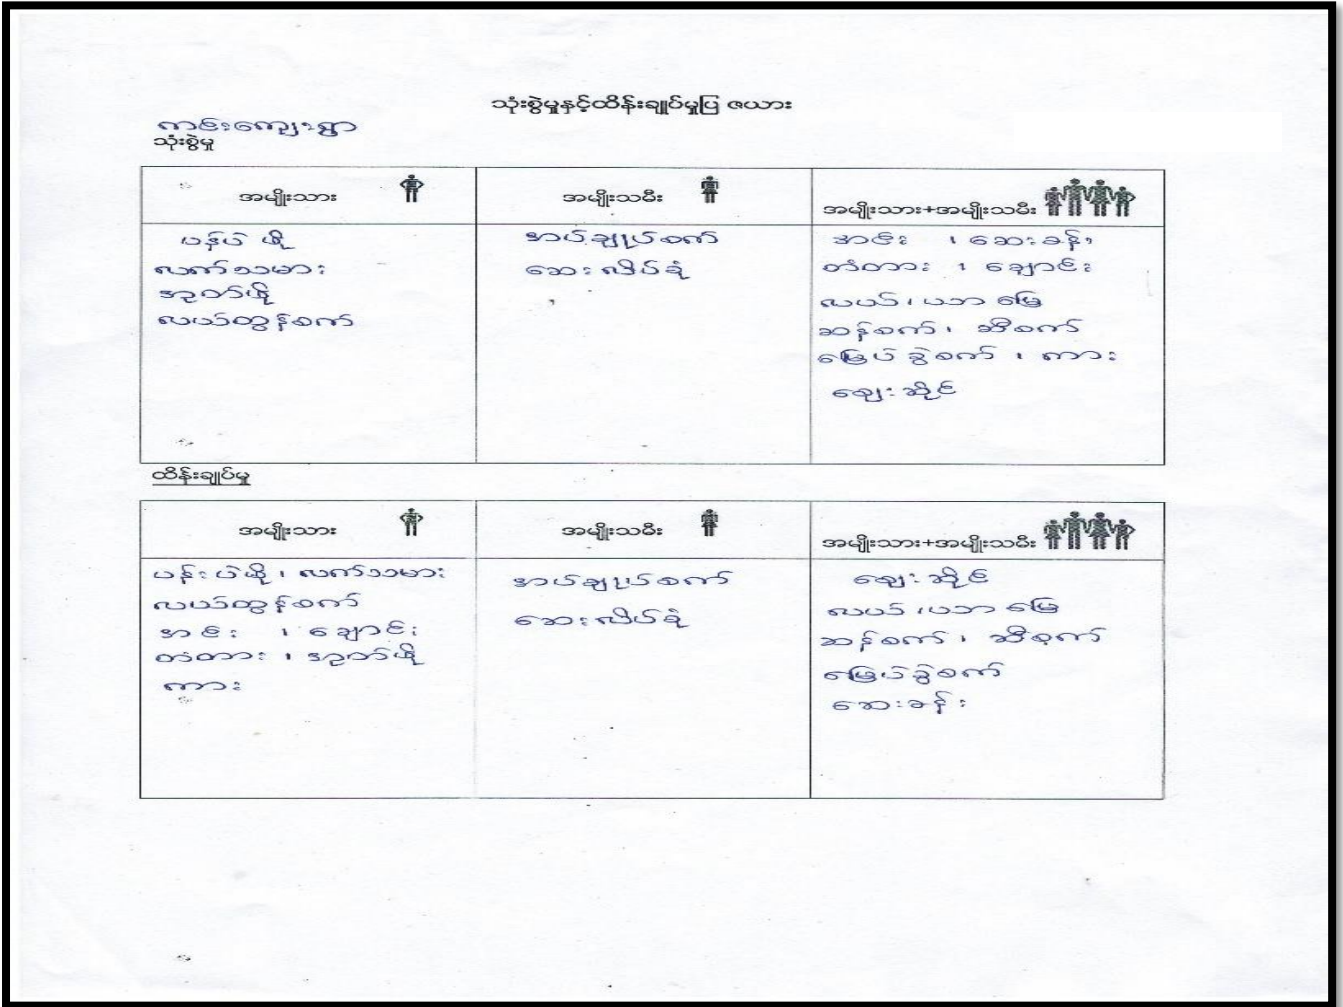 သုံးစွဲမှုနှင့်ထိန်းချုပ်မှုပြ ဇယား
ကင်းကျေးရွာ
သုံးစွဲမှု
အမျိုးသား
အမျိုးသမီး
အမျိုးသား+အမျိုးသမီး
ပန်ပဲ ဖို
လက်သမား
အုတ်ဖို
လယ်ထွန်စက်
အပ်ချုပ်စက်
ဆေးလိပ်ခုံ
အင်း ၊ ဆေးခန်း
တံတား ၊ ချောင်း
လယ်၊ ယာ မြေ
ဆန်စက်၊ ဆီစက်
မြေပဲ ခွဲစက် ၊ ကား
ဈေးဆိုင်
ထိန်းချုပ်မှု
အမျိုးသား
အမျိုးသမီး
အမျိုးသား+အမျိုးသမီး
ပန်းပဲဖို ၊ လက်သမား
လယ်ထွန်စက်
အင်း ၊ ချောင်း
တံတား ၊ အုတ်ဖို
ကား
အပ်ချုပ်စက်
ဆေးလိပ်ခုံ
ဈေးဆိုင်
လယ် ၊ယာ မြေ
ဆန်စက်၊ ဆီစက်
မြေပဲခွဲစက်
ဆေးခန်း